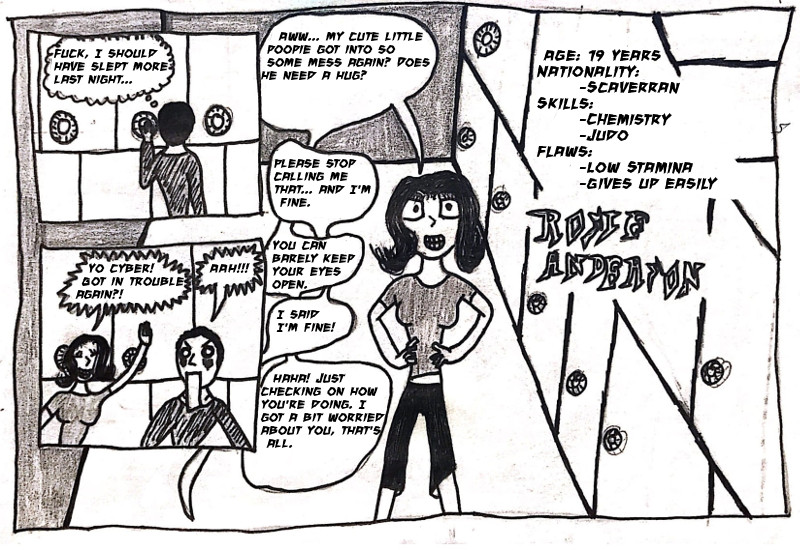 FUCK, I SHOULD
HAVE SLEPT MORE
LAST NIGHT...
YO CYBER!
GOT IN TROUBLE
AGAIN?!
AAH!!!
AWW... MY CUTE LITTLE
POOPIE GOT INTO SO
SOME MESS AGAIN? DOES
HE NEED A HUG?
PLEASE STOP
CALLING ME
THAT... AND I'M
FINE.
YOU CAN
BARELY KEEP
YOUR EYES
OPEN.
I SAID
I'M FINE!
HAHA! JUST
CHECKING ON HOW
YOU'RE DOING. I
GOT A BIT WORRIED
ABOUT YOU, THAT'S
ALL.
AGE: 19 YEARS
NATIONALITY:
-SCAVERRAN
SKILLS:
-CHEMISTRY
-JUDO
FLAWS:
-LOW STAMINA
-GIVES UP EASILY
ROSIE
ANDERSON